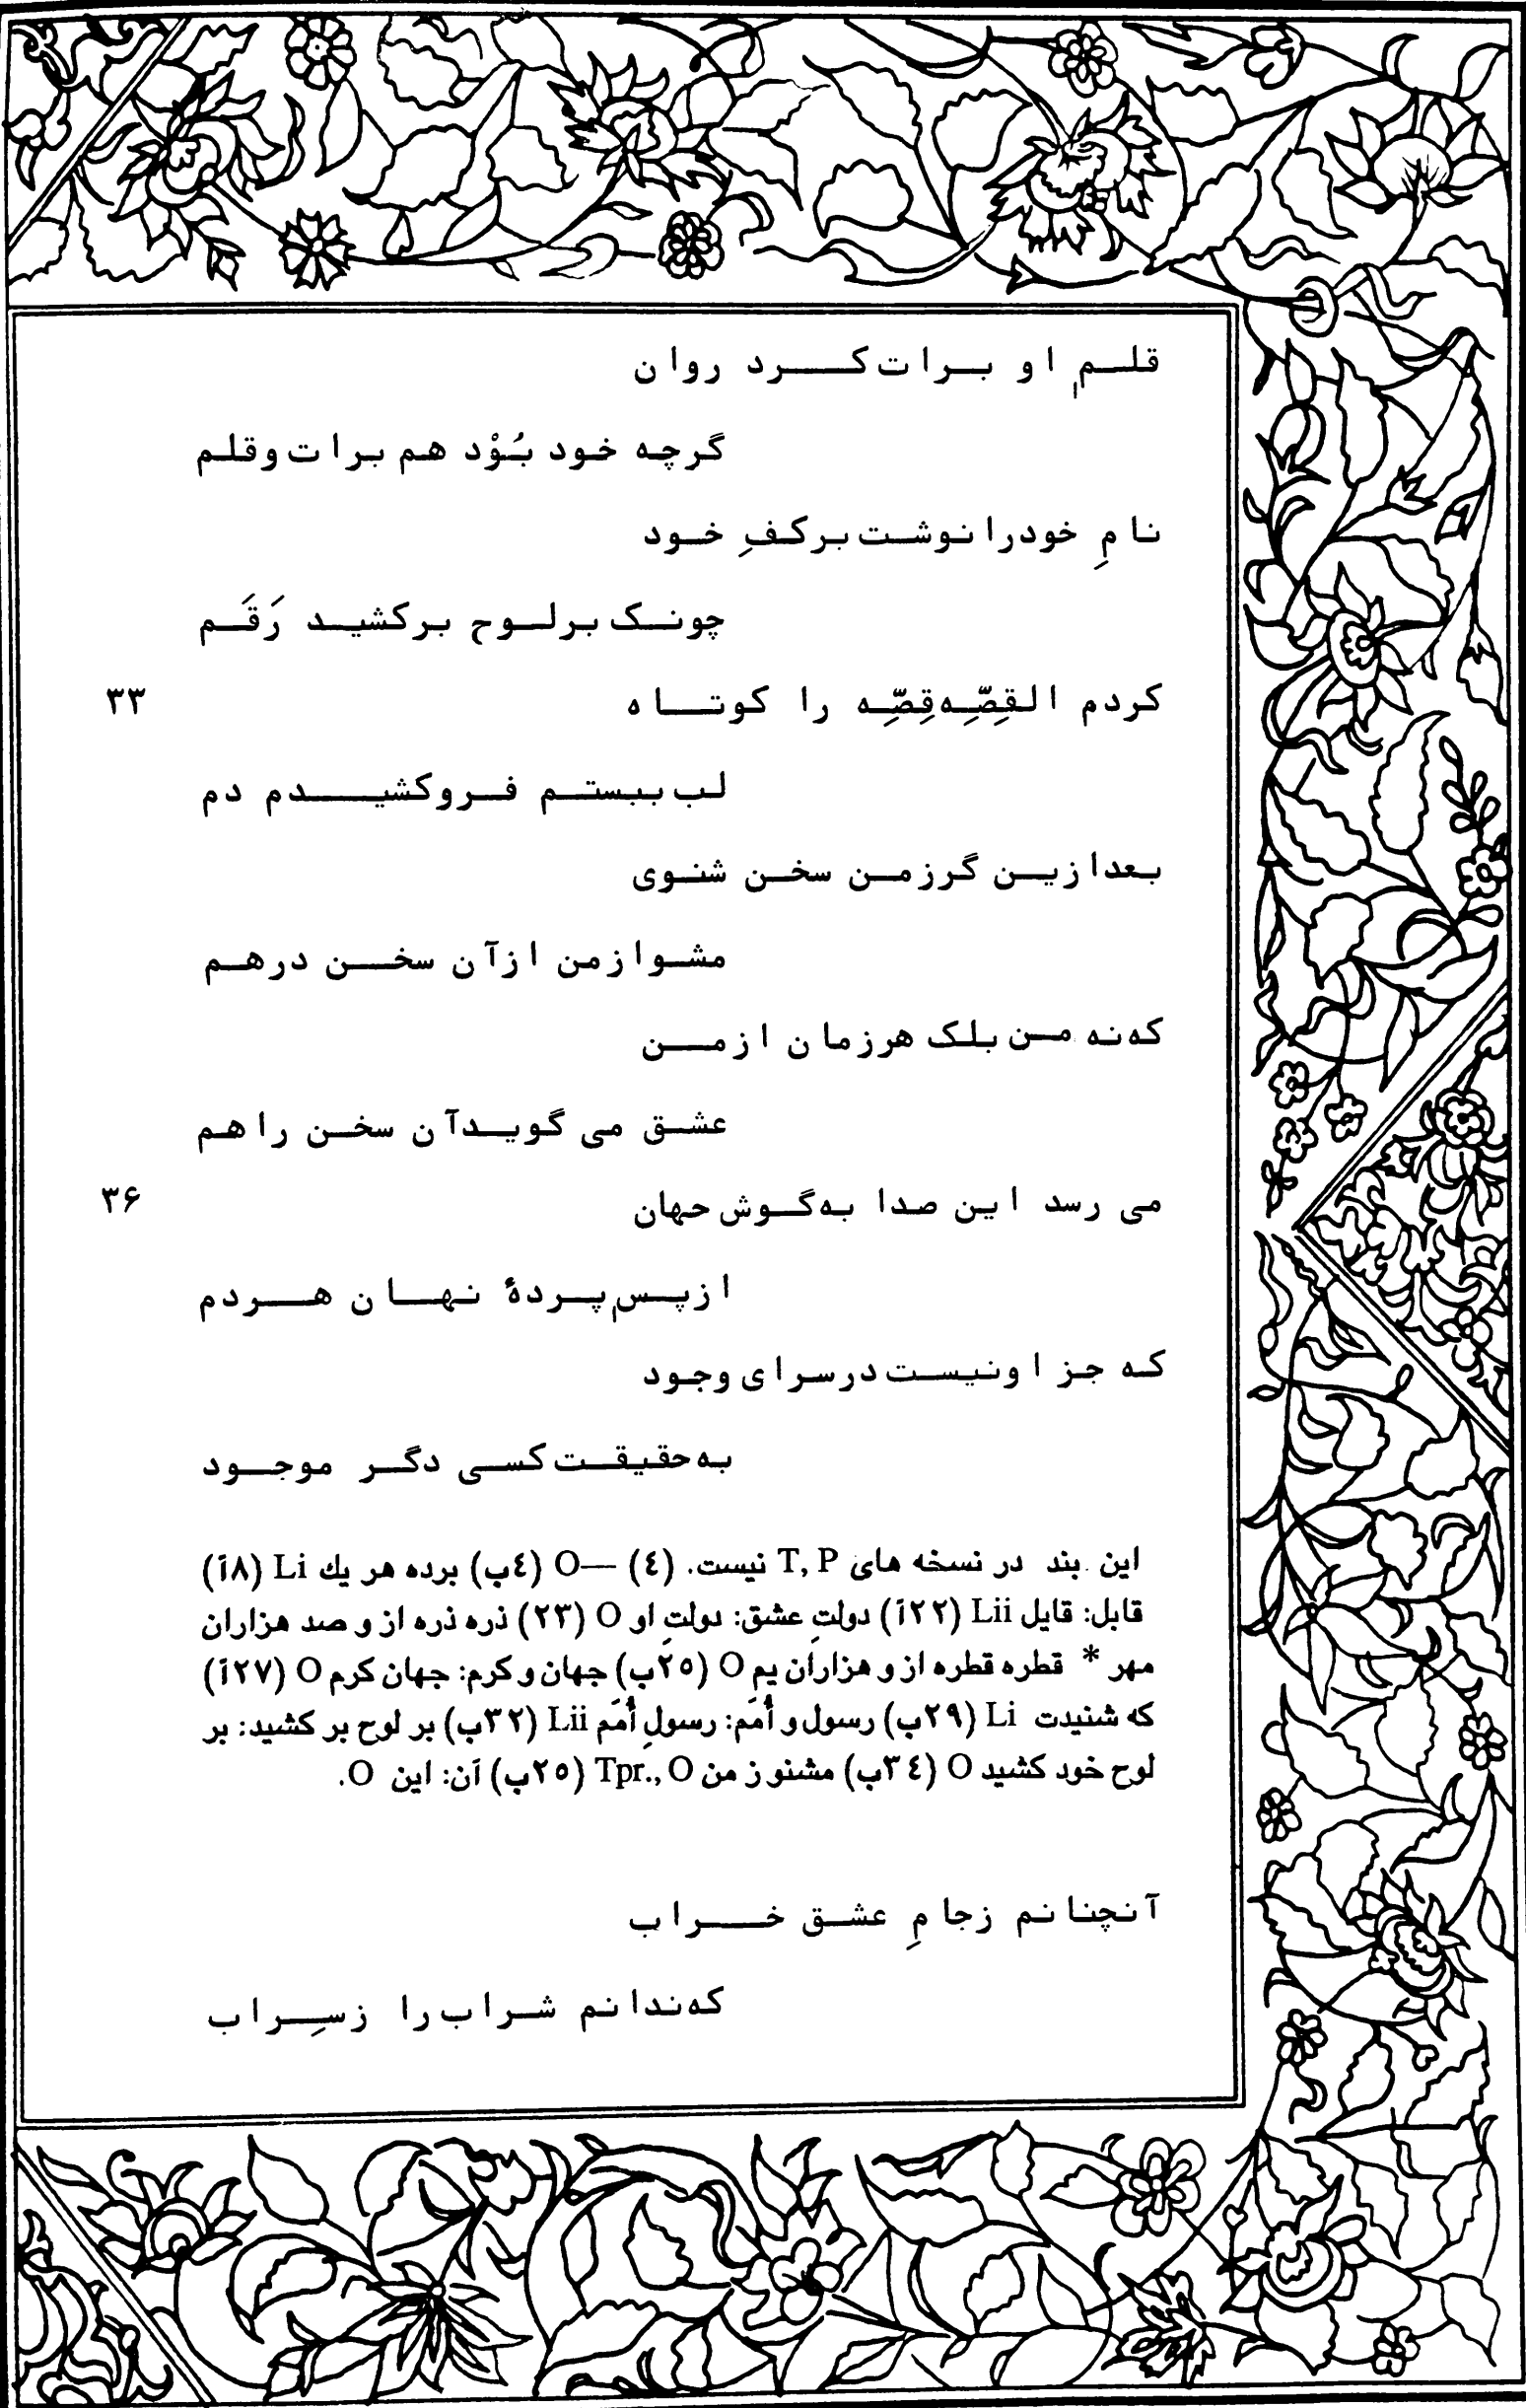 قلمِ او برات کرد روان
گرچه خود بُوْد هم برات و قلم
نامِ خود را نوشت بر کفِ خود
چونک بر لوح بر کشید رَقَم
کردم القِصِّه قِصِّه را کوتاه ۳۳
لب ببستم فرو کشیدم دم
بعد ازین گر ز من سخن شنوی
مشو از من از آن سخن درهم
که نه من بلک هر زمان از من
عشق می گوید آن سخن را هم
می رسد این صدا به گوش جهان ۳۶
از پسِ پردهٔ نهان هردم
که جز او نیست در سرای وجود
به حقیقت کسی دگر موجود
این بند در نسخه های T, P نیست. (٤) —O (٤ب) برده هر یك Li (٨آ)
قابل: قایل Lii (٢٢آ) دولتِ عشق: دولتِ او O (٢٣) ذره ذره از و صد هزاران
مهر * قطره قطره از و هزاران یم O (٢٥ب) جهان و کرم: جهان کرم O (٢٧آ)
که شنیدت Li (٢٩ب) رسول و أُمَم: رسولِ أُمَم Lii (٣٢ب) بر لوح بر کشید: بر
لوح خود کشید O (٣٤ب) مشنو ز من Tpr., O (٢٥ب) آن: این O.
آنچنانم ز جامِ عشق خراب
که ندانم شراب را ز سِراب